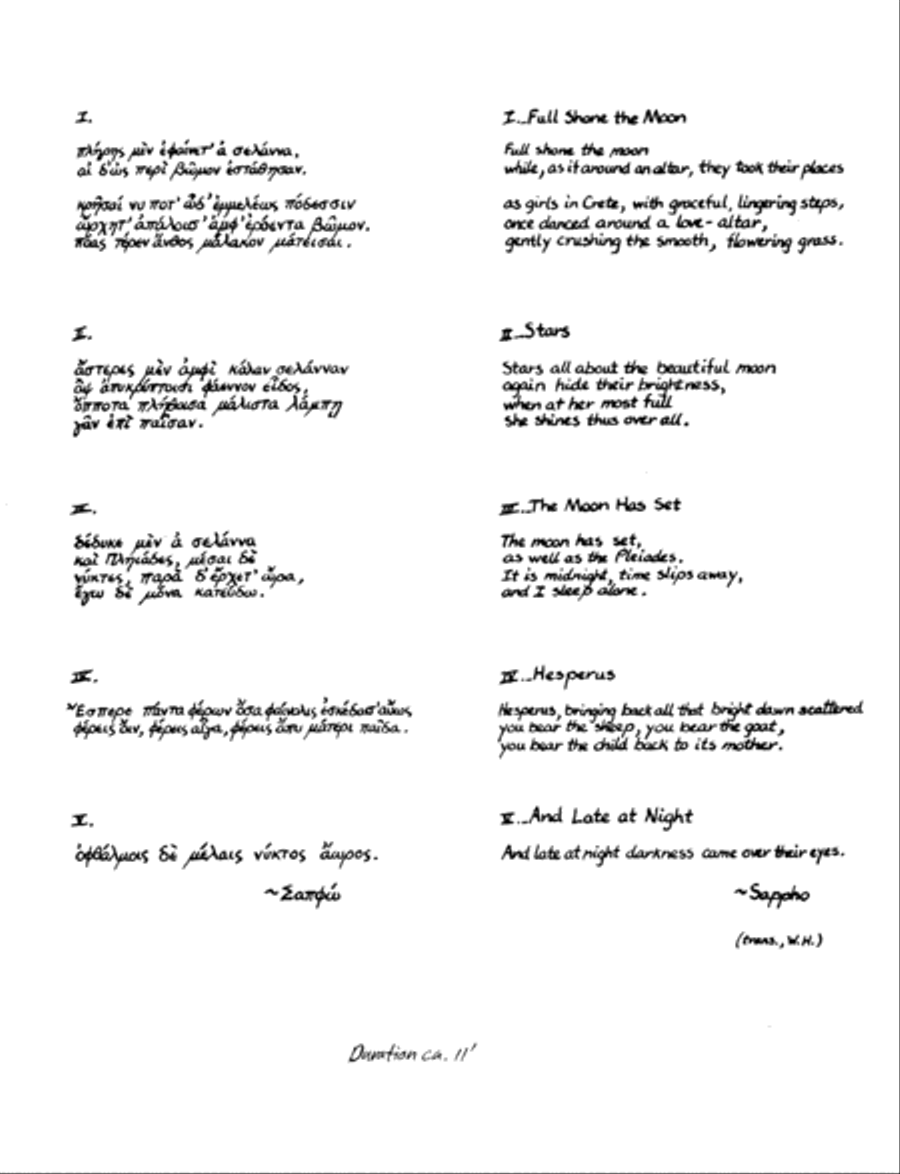 I.
πλήρης μὲν ἐφαίνετ' ἀ σελάννα,
αἰ δ' ὠς περὶ βῶμον ἐστάθησαν.
κρῆσσαί νυ ποτ' ὦδ' ἐμμελέως πόδεσσιν
ὤρχηντ' ἀπάλοισ' ἀμφ' ἐρόεντα βῶμον.
πόας τέρεν ἄνθος μάλακον μάτεισαι.
II.
ἄστερες μὲν ἀμφὶ κάλαν σελάνναν
ἂψ ἀπυκρύπτοισι φάεννον εἶδος,
ὄπποτα πλήθοισα μάλιστα λάμπῃ
γᾶν ἐπὶ παῖσαν.
III.
δέδυκε μὲν ἀ σελάννα
καὶ Πληιάδες, μέσαι δὲ
νύκτες, παρὰ δ' ἔρχετ' ὤρα,
ἔγω δὲ μόνα κατεύδω.
IV.
Ἔσπερε πάντα φέρων ὄσα φαίνολις ἐσκέδασ' αὔως
φέρεις ὄιν, φέρεις αἶγα, φέρεις ἄπυ μάτερι παῖδα.
V.
ὀφθάλμοις δὲ μέλαις νύκτος ἄωρος.
~Σαπφώ
I...Full Shone the Moon
Full shone the moon
while, as if around an altar, they took their places
as girls in Crete, with graceful, lingering steps,
once danced around a love-altar,
gently crushing the smooth, flowering grass.
II...Stars
Stars all about the beautiful moon
again hide their brightness,
when at her most full
she shines thus over all.
III...The Moon Has Set
The moon has set,
as well as the Pleiades.
It is midnight, time slips away,
and I sleep alone.
IV...Hesperus
Hesperus, bringing back all that bright dawn scattered
you bear the sheep, you bear the goat,
you bear the child back to its mother.
V...And Late at Night
And late at night darkness came over their eyes.
~Sappho
(trans., W.H.)
Duration ca. 11'